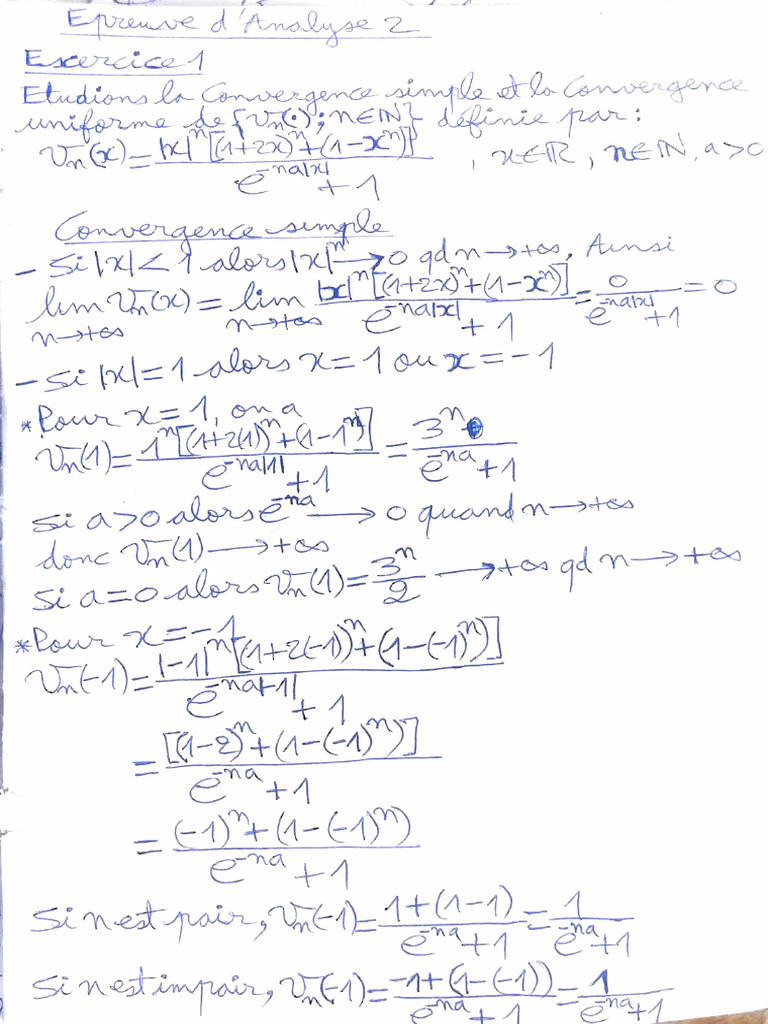 Epreuve d'Analyse 2
Exercice 1
Etudions la Convergence simple et la Convergence
uniforme de {Vn(·); n∈IN} définie par:
Vn(x) = |x|^n [(1+2x)^n + (1-x^n)] / (e^{-na|x|} + 1), x∈IR, n∈IN, a>0
Convergence simple
- Si |x| < 1 alors |x|^n → 0 qd n → +∞, Ainsi
lim_{n→+∞} Vn(x) = lim_{n→+∞} |x|^n [(1+2x)^n + (1-x^n)] / (e^{-na|x|} + 1) = 0 / (e^{-na|x|} + 1) = 0
- Si |x| = 1 alors x = 1 ou x = -1
* Pour x = 1, on a
Vn(1) = 1^n [(1+2(1))^n + (1-1^n)] / (e^{-na|1|} + 1) = 3^n / (e^{-na} + 1)
Si a>0 alors e^{-na} → 0 quand n → +∞
donc Vn(1) → +∞
Si a=0 alors Vn(1) = 3^n / 2 → +∞ qd n → +∞
* Pour x = -1
Vn(-1) = |-1|^n [(1+2(-1))^n + (1-(-1)^n)] / (e^{-na|-1|} + 1)
= [(1-2)^n + (1-(-1)^n)] / (e^{-na} + 1)
= (-1)^n + (1-(-1)^n) / (e^{-na} + 1)
Si n est pair, Vn(-1) = 1+(1-1) / (e^{-na} + 1) = 1 / (e^{-na} + 1)
Si n est impair, Vn(-1) = -1+(1-(-1)) / (e^{-na} + 1) = 1 / (e^{-na} + 1)